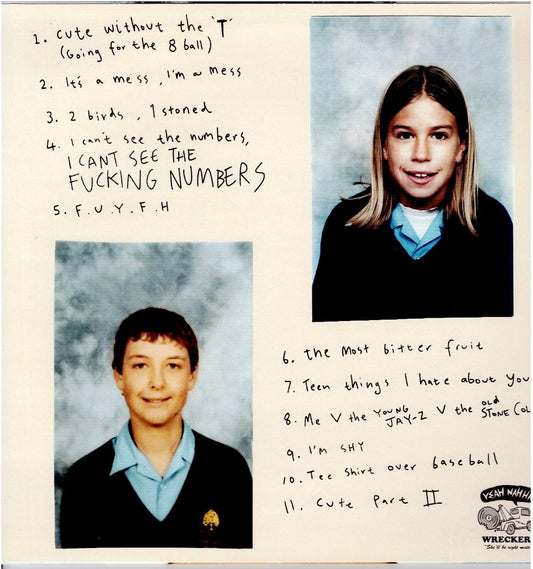 1. cute without the 'T'
(Going for the 8 ball)
2. It's a mess, I'm a mess
3. 2 birds, 1 stoned
4. I can't see the numbers,
I CANT SEE THE
FUCKING NUMBERS
5. F.U.Y.F.H
6. the most bitter fruit
7. Teen things I hate about you
8. Me V the YOUNG JAY-Z V the Old STONE COL
9. I'M SHY
10. Tee shirt over baseball
11. Cute Part II
YEAH NAHH
WRECKER
"She'll be right mate